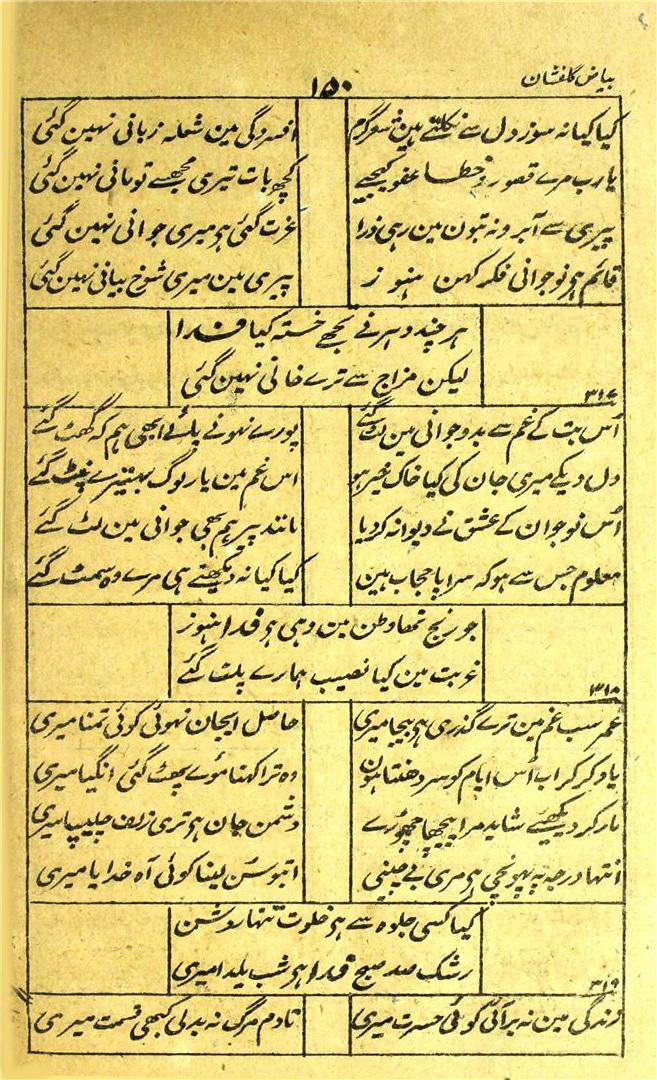 بیاض گلفشان
۱۵۰
کیا کیا نہ سوز دل سے نکلتے ہین شعر گرم افسردگی مین شعلہ زبانی نہین گئی
یارب مرے قصور و خطا عفو کیجیے کچھ بات تیری مجھسے تو مانی نہین گئی
پیری سے آبرو نہ بتون مین رہی ذرا عزت گئی ہو میری جوانی نہین گئی
قائم ہو نوجوانی فکر کہن ہنوز پیری مین میری شوخ بیانی نہین گئی
ہر چند دہر نے تجھے خستہ کیا فدا
لیکن مزاج سے ترے خانی نہین گئی
۳۱۷
اُس بت کے غم سے بدو جوانی مین لٹ گئے پورے نہونے پائے ابھی ہم کہ گھٹ گئے
دل دیکے میری جان کی کیا خاک خیر ہو اس غم مین یار لوگ بہتیرے نپٹ گئے
اُس نوجوان کے عشق نے دیوانہ کردیا مانند پیر ہم بھی جوانی مین لٹ گئے
معلوم جس سے ہو کہ سراپا حجاب ہین کیا کیا نہ دیکھتے ہی مرے وہ سمٹ گئے
جو رنج تھا وطن مین وہی ہو فدا ہنوز
غربت مین کیا نصیب ہمارے پلٹ گئے
۳۱۸
عمر سب غم مین ترے گذری ہو بیجا میری حاصل ایجان نہوئی کوئی تمنا میری
یاد کر کر اب اُس ایام کو سر دھنتا ہون وہ ترا کہنا موے پھٹ گئی انگیا میری
مار کر دیکھیے شاید مرا پیچھا چھوڑے دشمن جان ہو تری زلف چلیپا میری
انتہا درجہ پہ پہونچی ہو مری بے چینی اتبو سُن لینا کوئی آہ خدایا میری
کیا کسی جلوہ سے ہو خلوت تنہا روشن
رشک صد صبح فدا ہو شب یلدا میری
۳۱۹
زندگی مین نہ بر آئی کوئی حسرت میری تا دم مرگ نہ بدلی کبھی قسمت میری